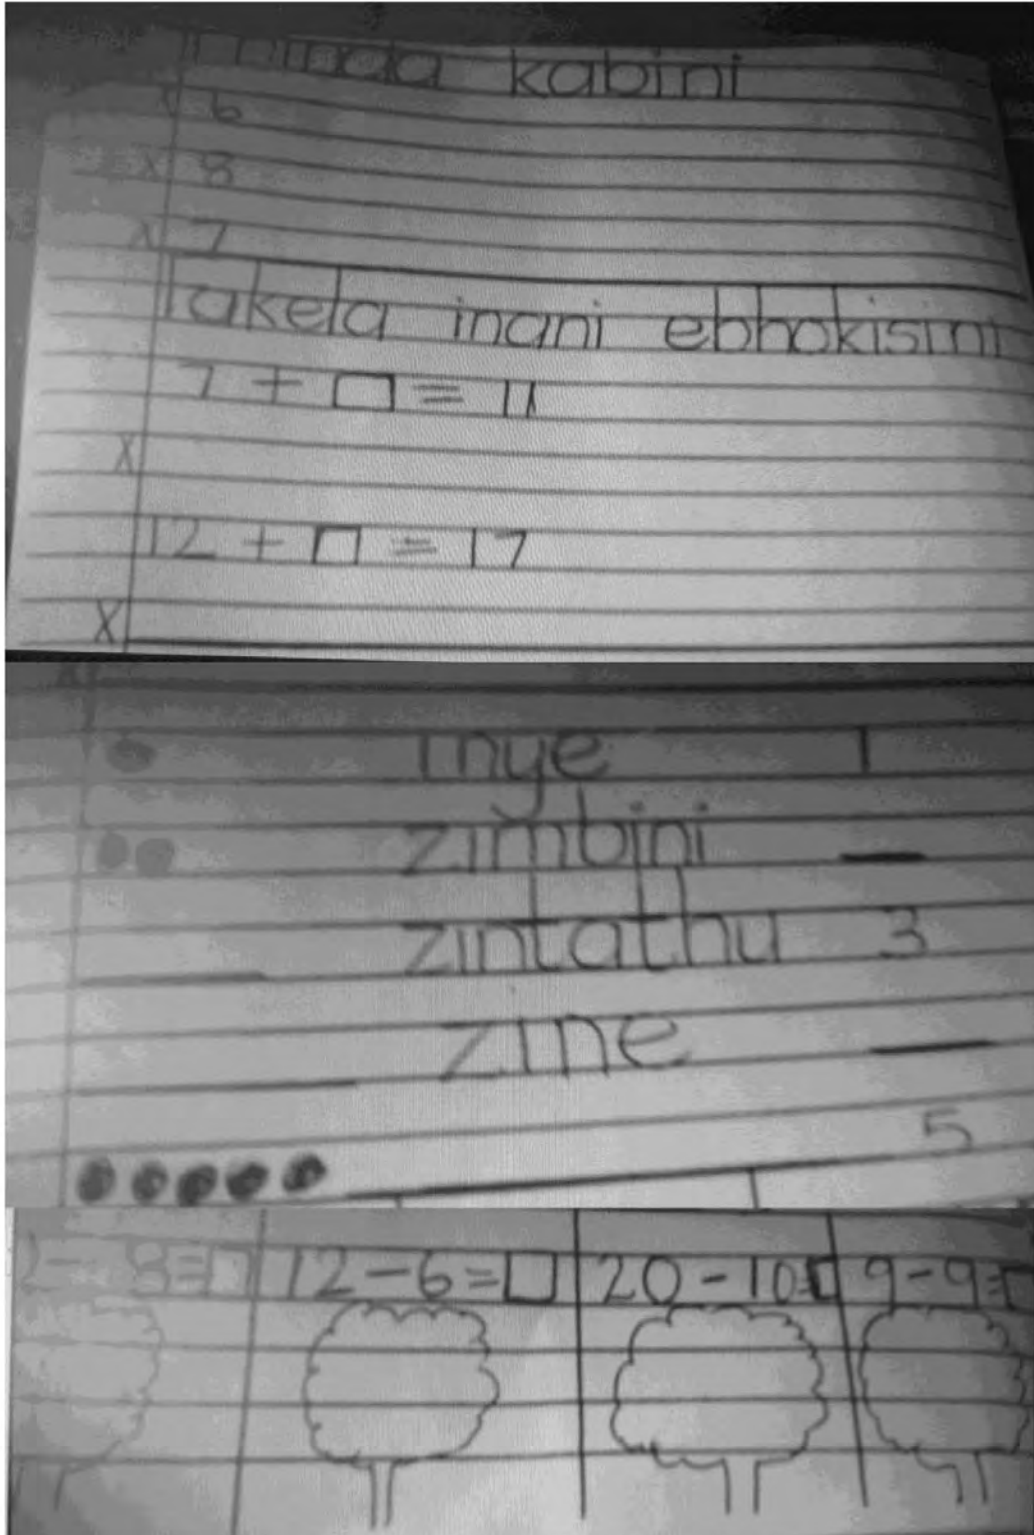 kabini
x 6
x 8
x 7
Takela inani ebhokisini
7 + □ = 11
x
12 + □ = 17
x
inye 1
zimbini __
__ zintathu 3
__ zine __
__ 5
- 8 = □ 12 - 6 = □ 20 - 10 = □ 9 - 9 = □